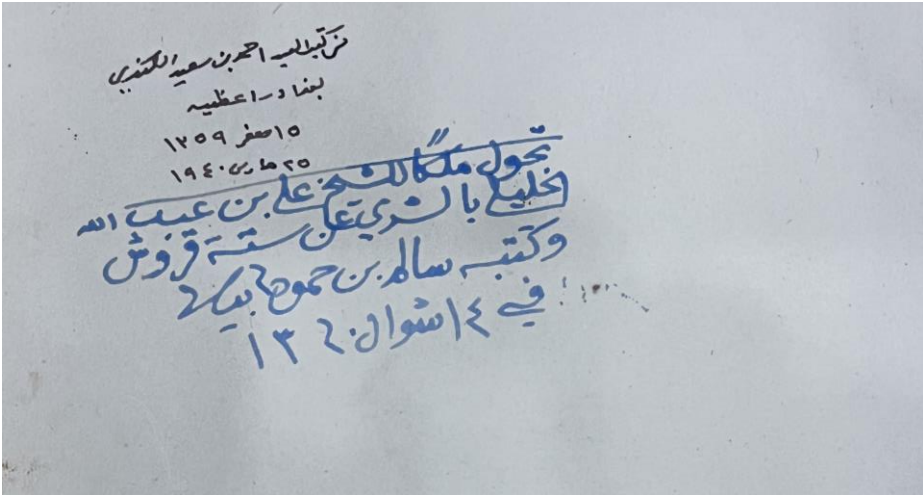 من كتب السيد احمد بن سعيد الكندي
بغداد - اعظميه
١٥ صفر ١٣٥٩
٢٥ مارس ١٩٤٠
تحول ملكًا للشيخ علي بن عبد الله
الخليلي بالشري عن ستة قروش
وكتبه سالم بن حمود بيده
في ١٤ شوال ١٣٦٠